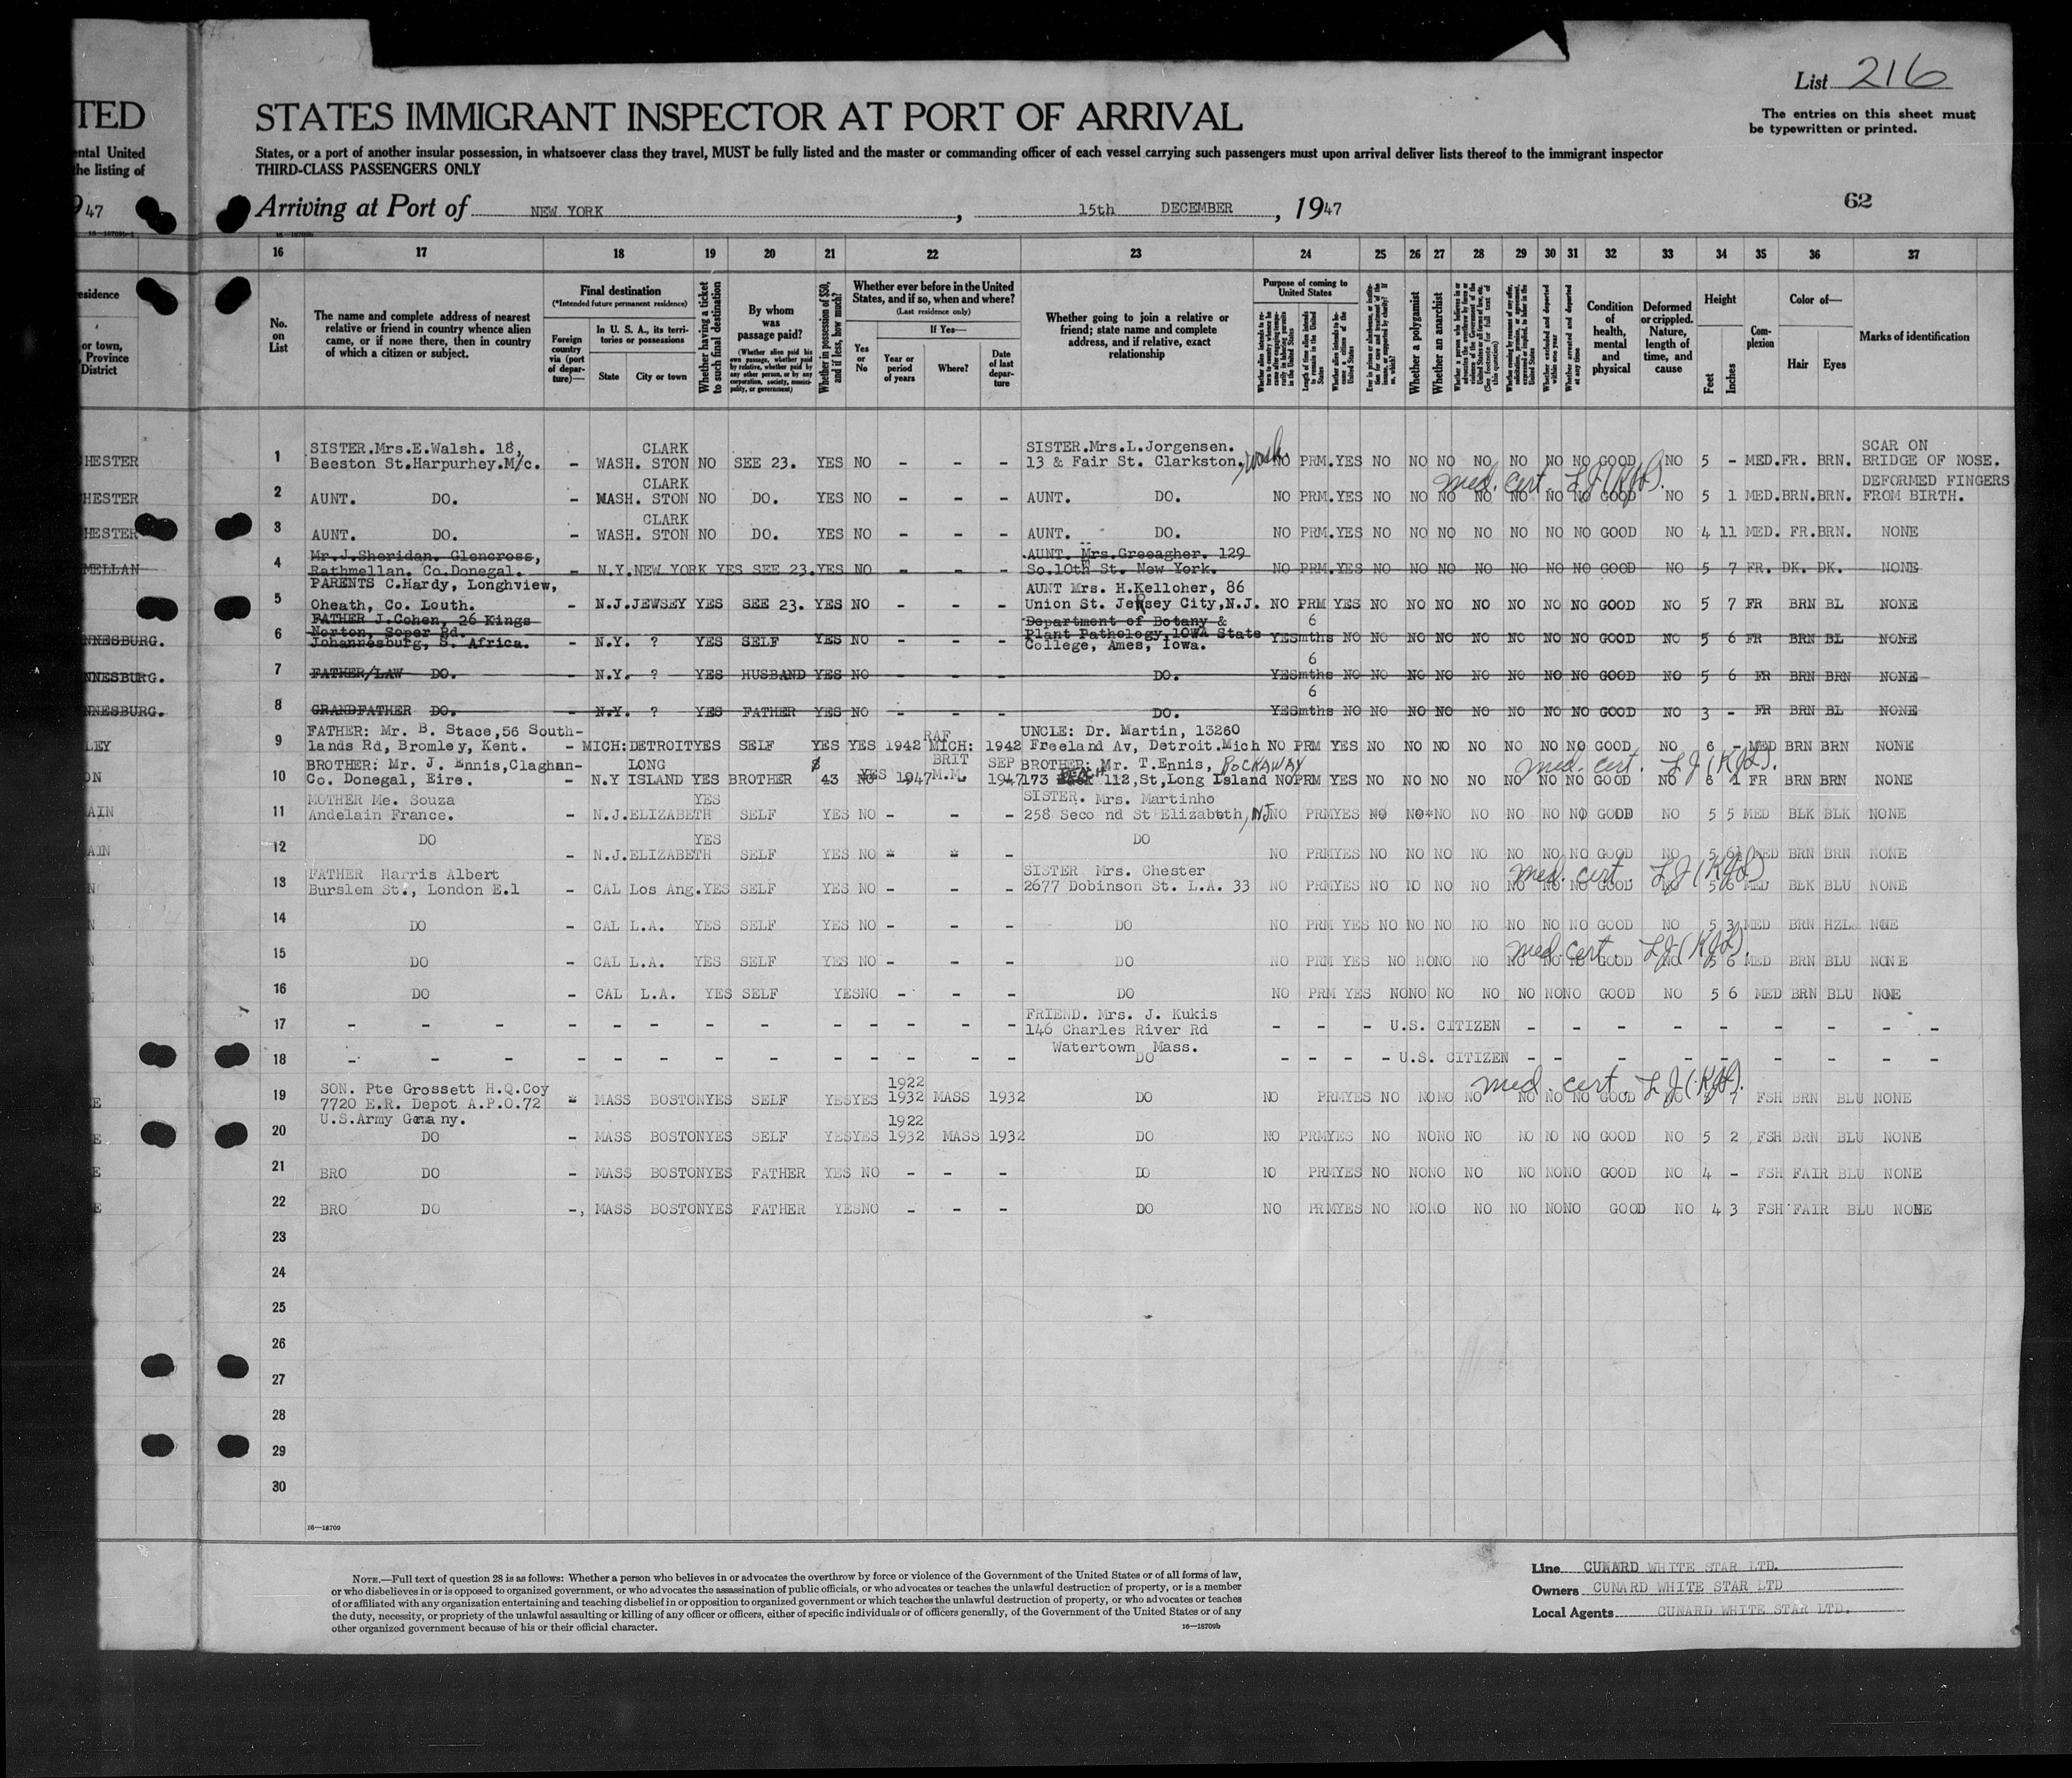 List 216
The entries on this sheet must
be typewritten or printed.
TED
STATES IMMIGRANT INSPECTOR AT PORT OF ARRIVAL
ental United
the listing of
States, or a port of another insular possession, in whatsoever class they travel, MUST be fully listed and the master or commanding officer of each vessel carrying such passengers must upon arrival deliver lists thereof to the immigrant inspector
THIRD-CLASS PASSENGERS ONLY
62
47
Arriving at Port of NEW YORK, 15th DECEMBER, 1947
16 17 18 19 20 21 22 23 24 25 26 27 28 29 30 31 32 33 34 35 36 37
esidence
or town,
Province
District
No. on List
The name and complete address of nearest relative or friend in country whence alien came, or if none there, then in country of which a citizen or subject.
Final destination
(*Intended future permanent residence)
Foreign country via (port of departure)—
In U. S. A., its territories or possessions
State City or town
Whether having a ticket to such final destination
By whom was passage paid?
(Whether alien paid his own passage, whether paid by relative, whether paid by any other person, or by any corporation, society, municipality, or government)
Whether in possession of $50, and if less, how much?
Whether ever before in the United States, and if so, when and where?
(Last residence only)
If Yes—
Yes or No
Year or period of years
Where?
Date of last departure
Whether going to join a relative or friend; state name and complete address, and if relative, exact relationship
Purpose of coming to United States
Whether a polygamist
Whether an anarchist
Condition of health, mental and physical
Deformed or crippled. Nature, length of time, and cause
Height
Feet Inches
Complexion
Color of—
Hair Eyes
Marks of identification
HESTER 1 SISTER.Mrs.E.Walsh. 18, Beeston St.Harpurhey.M/c. - WASH. CLARK STON NO SEE 23. YES NO - - - SISTER.Mrs.L.Jorgensen. 13 & Fair St. Clarkston, Wash NO PRM. YES NO NO NO NO NO NO NO GOOD NO 5 - MED. FR. BRN. SCAR ON BRIDGE OF NOSE.
med. cert. LJ (KJL).
HESTER 2 AUNT. DO. - WASH. CLARK STON NO DO. YES NO - - - AUNT. DO. NO PRM. YES NO NO NO NO NO NO NO GOOD NO 5 1 MED. BRN. BRN. DEFORMED FINGERS FROM BIRTH.
HESTER 3 AUNT. DO. - WASH. CLARK STON NO DO. YES NO - - - AUNT. DO. NO PRM. YES NO NO NO NO NO NO NO GOOD NO 4 11 MED. FR. BRN. NONE
MELLAN 4 Mr.J.Sheridan. Glencross, Rathmellan. Co.Donegal. - N.Y. NEW YORK YES SEE 23. YES NO - - - AUNT. Mrs.Greeagher. 129 So.10th St. New York. NO PRM. YES NO NO NO NO NO NO NO GOOD NO 5 7 FR. DK. DK. NONE
5 PARENTS C.Hardy, Longhview, Oheath, Co. Louth. - N.J. JEWSEY YES SEE 23. YES NO - - - AUNT Mrs. H.Kelloher, 86 Union St. JeRsey City,N.J. NO PRM YES NO NO NO NO NO NO NO GOOD NO 5 7 FR BRN BL NONE
NNESBURG. 6 FATHER J.Cohen, 26 Kings Norton, Soper Rd. Johannesburg, S. Africa. - N.Y. ? YES SELF YES NO - - - Department of Botany & Plant Pathology, IOWA State College, Ames, Iowa. YES 6 mths NO NO NO NO NO NO NO NO GOOD NO 5 6 FR BRN BL NONE
NNESBURG. 7 FATHER/LAW DO. - N.Y. ? YES HUSBAND YES NO - - - DO. YES 6 mths NO NO NO NO NO NO NO NO GOOD NO 5 6 FR BRN BRN NONE
NNESBURG. 8 GRANDFATHER DO. - N.Y. ? YES FATHER YES NO - - - DO. YES 6 mths NO NO NO NO NO NO NO NO GOOD NO 3 - FR BRN BL NONE
LEY 9 FATHER: Mr. B. Stace,56 Southlands Rd, Bromley, Kent. - MICH: DETROIT YES SELF YES YES 1942 RAF MICH: 1942 UNCLE: Dr. Martin, 13260 Freeland Av, Detroit.Mich NO PRM YES NO NO NO NO NO NO NO GOOD NO 6 - MED BRN BRN NONE
med. cert. LJ (KJL).
ON 10 BROTHER: Mr. J. Ennis,Claghan- Co. Donegal, Eire. - N.Y LONG ISLAND YES BROTHER $ 43 NO YES 1947 BRIT M.M. SEP 1947 BROTHER: Mr. T.Ennis, ROCKAWAY 173 BEACH 112,St,Long Island NO PRM YES NO NO NO NO NO NO NO GOOD NO 6 1 FR BRN BRN NONE
AIN 11 MOTHER Me. Souza Andelain France. - N.J. ELIZABETH YES SELF YES NO - - - SISTER. Mrs. Martinho 258 Seco nd St Elizabeth, NJ NO PRM YES NO NO* NO NO NO NO NO GOOD NO 5 5 MED BLK BLK NONE
AIN 12 DO - N.J. ELIZABETH YES SELF YES NO * * - DO NO PRM YES NO NO NO NO NO NO NO GOOD NO 5 6½ MED BRN BRN NONE
med. cert. LJ (KJL)
N 13 FATHER Harris Albert Burslem St., London E.1 - CAL Los Ang. YES SELF YES NO - - - SISTER Mrs. Chester 2677 Dobinson St. L.A. 33 NO PRM YES NO NO NO NO NO NO NO GOOD NO 5 6 MED BLK BLU NONE
N 14 DO - CAL L.A. YES SELF YES NO - - - DO NO PRM YES NO NO NO NO NO NO NO GOOD NO 5 3 MED BRN HZL NONE
med. cert. LJ (KJL).
N 15 DO - CAL L.A. YES SELF YES NO - - - DO NO PRM YES NO NO NO NO NO NO NO GOOD NO 5 6 MED BRN BLU NONE
N 16 DO - CAL L.A. YES SELF YES NO - - - DO NO PRM YES NO NO NO NO NO NO NO GOOD NO 5 6 MED BRN BLU NONE
17 - - - - - - - - - - - FRIEND. Mrs. J. Kukis 146 Charles River Rd Watertown Mass. - - - U.S. CITIZEN - - - - - - - - - -
18 - - - - - - - - - - - DO - - - - U.S. CITIZEN - - - - - - - - -
med. cert. LJ (KJL).
E 19 SON. Pte Grossett H.Q.Coy 7720 E.R. Depot A.P.O.72 U.S.Army Gemany. - MASS BOSTON YES SELF YES YES 1922 1932 MASS 1932 DO NO PRM YES NO NO NO NO NO NO NO GOOD NO 5 7 FSH BRN BLU NONE
E 20 DO - MASS BOSTON YES SELF YES YES 1922 1932 MASS 1932 DO NO PRM YES NO NO NO NO NO NO NO GOOD NO 5 2 FSH BRN BLU NONE
E 21 BRO DO - MASS BOSTON YES FATHER YES NO - - - DO NO PRM YES NO NO NO NO NO NO NO GOOD NO 4 - FSH FAIR BLU NONE
E 22 BRO DO -, MASS BOSTON YES FATHER YES NO - - - DO NO PRM YES NO NO NO NO NO NO NO GOOD NO 4 3 FSH FAIR BLU NONE
23
24
25
26
27
28
29
30
16—18709
NOTE.—Full text of question 28 is as follows: Whether a person who believes in or advocates the overthrow by force or violence of the Government of the United States or of all forms of law,
or who disbelieves in or is opposed to organized government, or who advocates the assassination of public officials, or who advocates or teaches the unlawful destruction of property, or is a member
of or affiliated with any organization entertaining and teaching disbelief in or opposition to organized government or which teaches the unlawful destruction of property, or who advocates or teaches
the duty, necessity, or propriety of the unlawful assaulting or killing of any officer or officers, either of specific individuals or of officers generally, of the Government of the United States or of any
other organized government because of his or their official character.
16—18709b
Line CUNARD WHITE STAR LTD.
Owners CUNARD WHITE STAR LTD
Local Agents CUNARD WHITE STAR LTD.